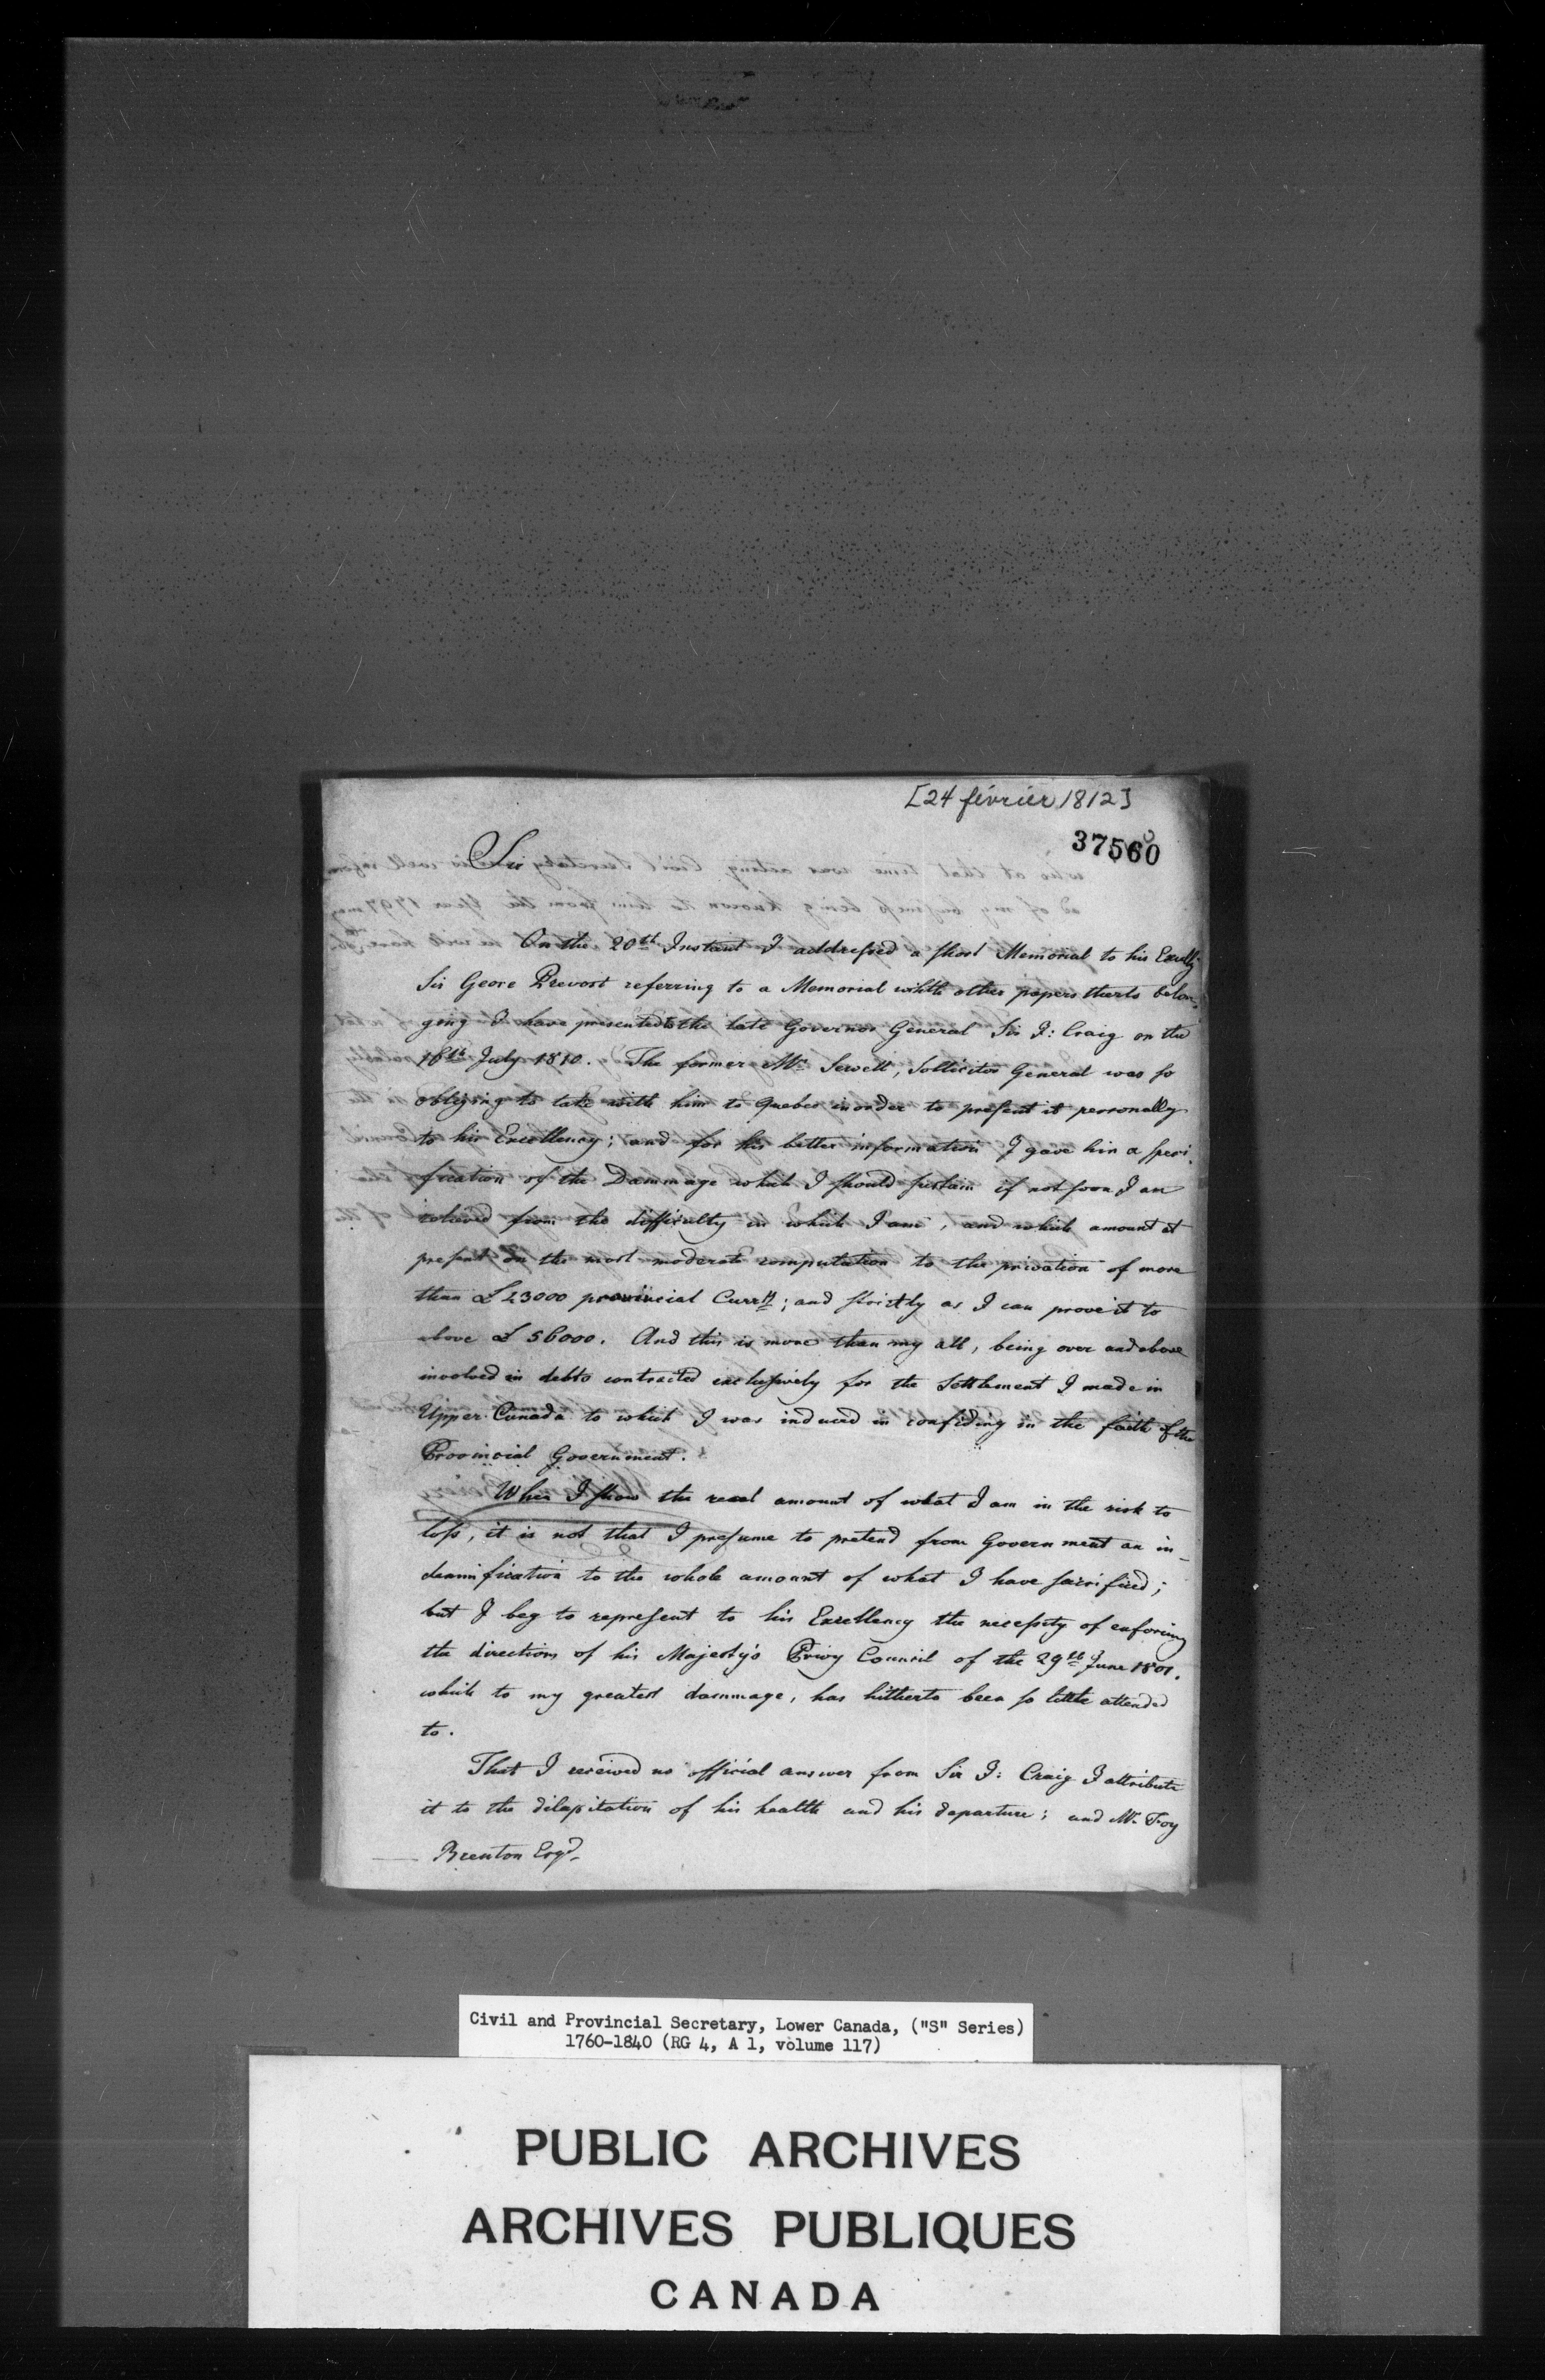 [24 février 1812]
37560
Sir
On the 20th Instant I addressed a short Memorial to his Excelly
Sir Geore Prevost referring to a Memorial whith other papers therto belon-
ging I have presented to the late Governor General Sir J: Craig on the
16th July 1810. The former Mr Sewell, Sollicitor General was so
obliging to take with him to Quebec inorder to present it personally
to his Excellency; and for his better information I gave him a speci-
fication of the Dammage which I should sustain if not soon I am
relieved from the difficulty in which I am, and which amount at
present on the most moderate computation to the privation of more
than £ 23000 provincial Curry; and strictly as I can prove it to
above £ 56000. And this is more than my all, being over and above
involved in debts contracted exclusively for the Settlement I made in
Upper Canada to which I was induced in confiding in the faith of the
Provincial Government.
When I show the real amount of what I am in the risk to
loss, it is not that I presume to pretend from Government an in-
demnification to the whole amount of what I have sacrificed;
but I beg to represent to his Excellency the necessity of enforcing
the directions of his Majesty's Privy Council of the 29th June 1801.
which to my greatest dammage, has hitherto been so little attended
to.
That I received no official answer from Sir J: Craig I attribute
it to the dilapitation of his health and his departure; and Mr Foy
Brenton Esqr.
Civil and Provincial Secretary, Lower Canada, ("S" Series)
1760-1840 (RG 4, A 1, volume 117)
PUBLIC ARCHIVES
ARCHIVES PUBLIQUES
CANADA